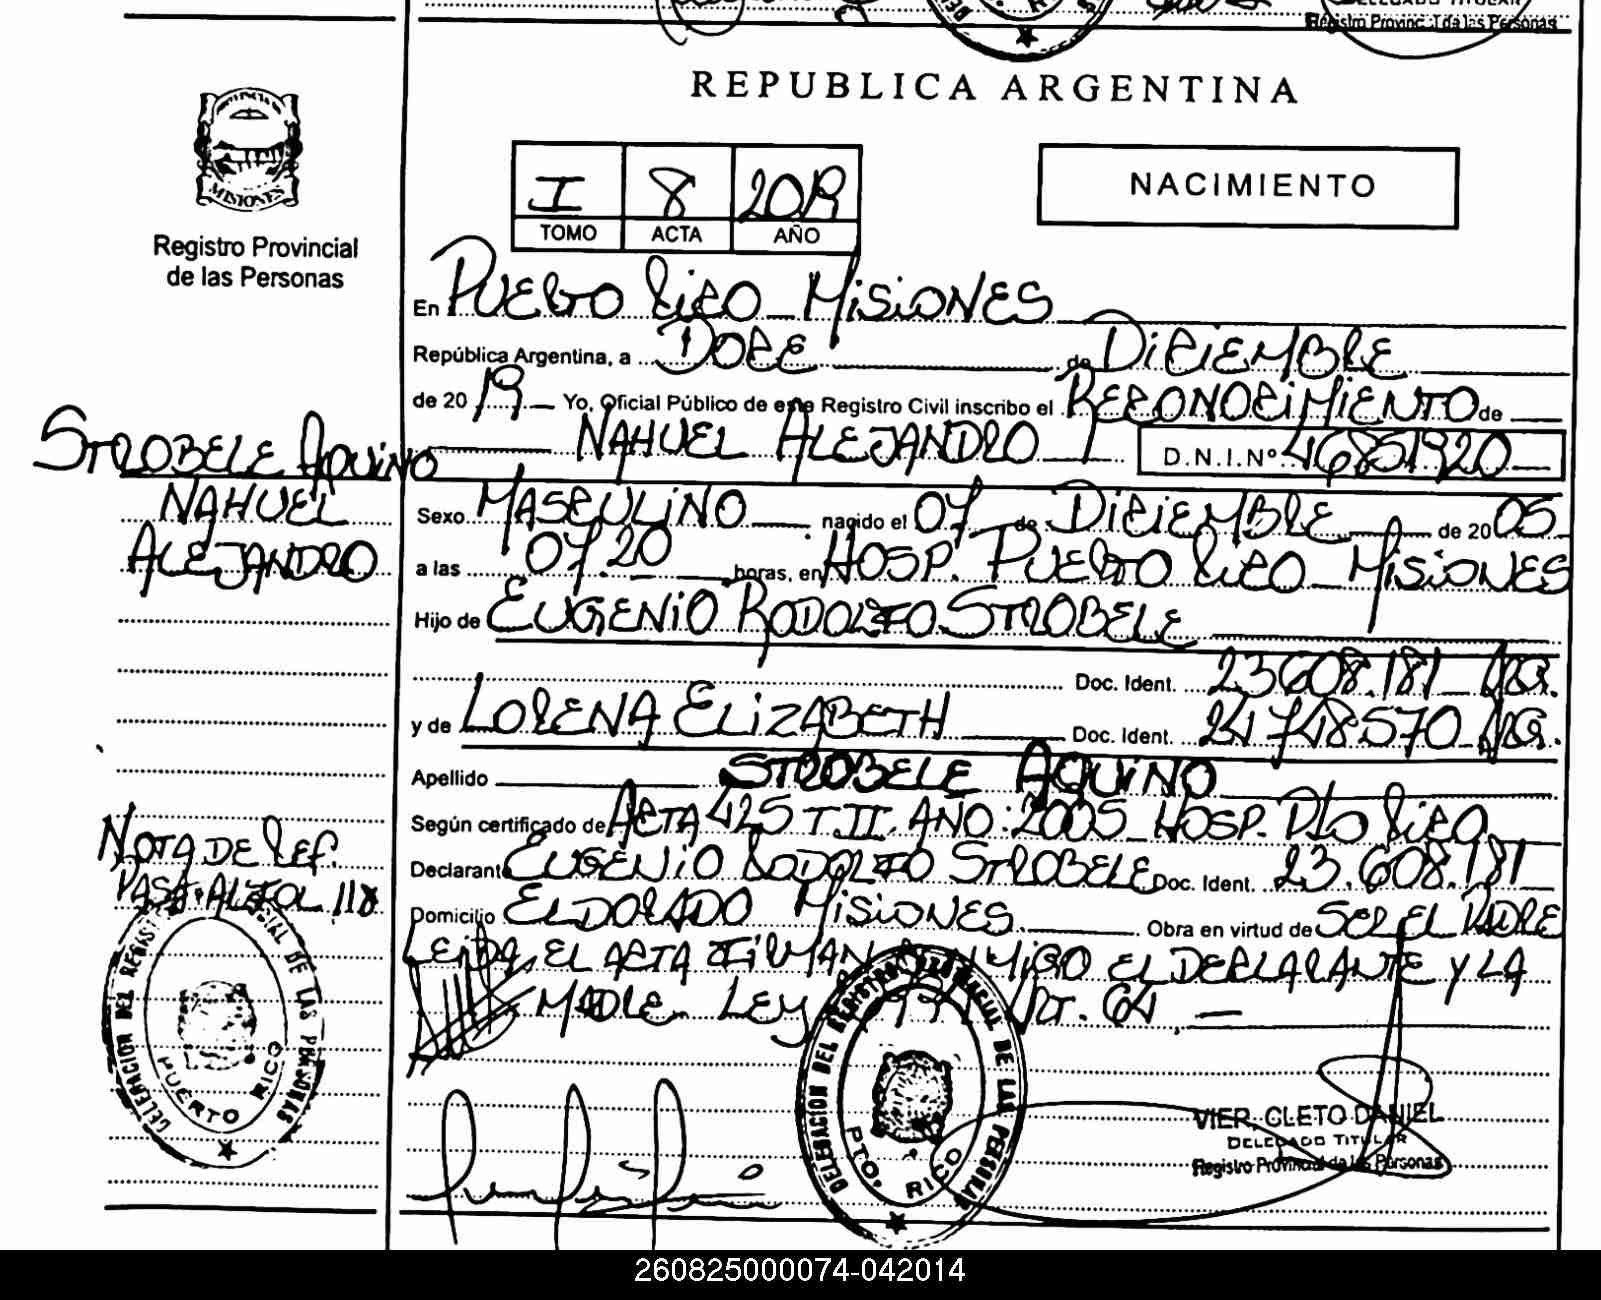 Registro Provinc. l de las Personas
REPUBLICA ARGENTINA
PROVINCIA DE
MISIONES
Registro Provincial
de las Personas
I 8 2019
TOMO ACTA AÑO
NACIMIENTO
En PUERTO RICO - MISIONES
República Argentina, a DOCE de DICIEMBRE
de 2019 Yo, Oficial Público de este Registro Civil inscribo el RECONOCIMIENTO de
NAHUEL ALEJANDRO D.N.I.Nº 46851920
STROBELE AQUINO
NAHUEL
ALEJANDRO
Sexo MASCULINO nacido el 07 de DICIEMBRE de 2005
a las 07.20 horas, en HOSP. PUERTO RICO - MISIONES
Hijo de EUGENIO RODOLFO STROBELE
Doc. Ident. 23.608.181 - ARG.
y de LORENA ELIZABETH Doc. Ident. 24748570 - ARG.
Apellido STROBELE AQUINO
Según certificado de ACTA 425 T II. AÑO: 2005 - HOSP. PTO RICO
Declarante EUGENIO RODOLFO STROBELE Doc. Ident. 23.608.181
Domicilio ELDORADO MISIONES Obra en virtud de SER EL PADRE
LEIDA EL ACTA FIRMAN CONMIGO EL DECLARANTE Y LA
MADRE. LEY ART. 64. -
NOTA DE REF.
PASA AL FOL 118
DELEGACION DEL REGISTRO PROVINCIAL DE LAS PERSONAS
PUERTO RICO
DELEGACION DEL REGISTRO PROVINCIAL DE LAS PERSONAS
PTO. RICO
VIER. CLETO DANIEL
DELEGADO TITULAR
Registro Provincial de las Personas
260825000074-042014